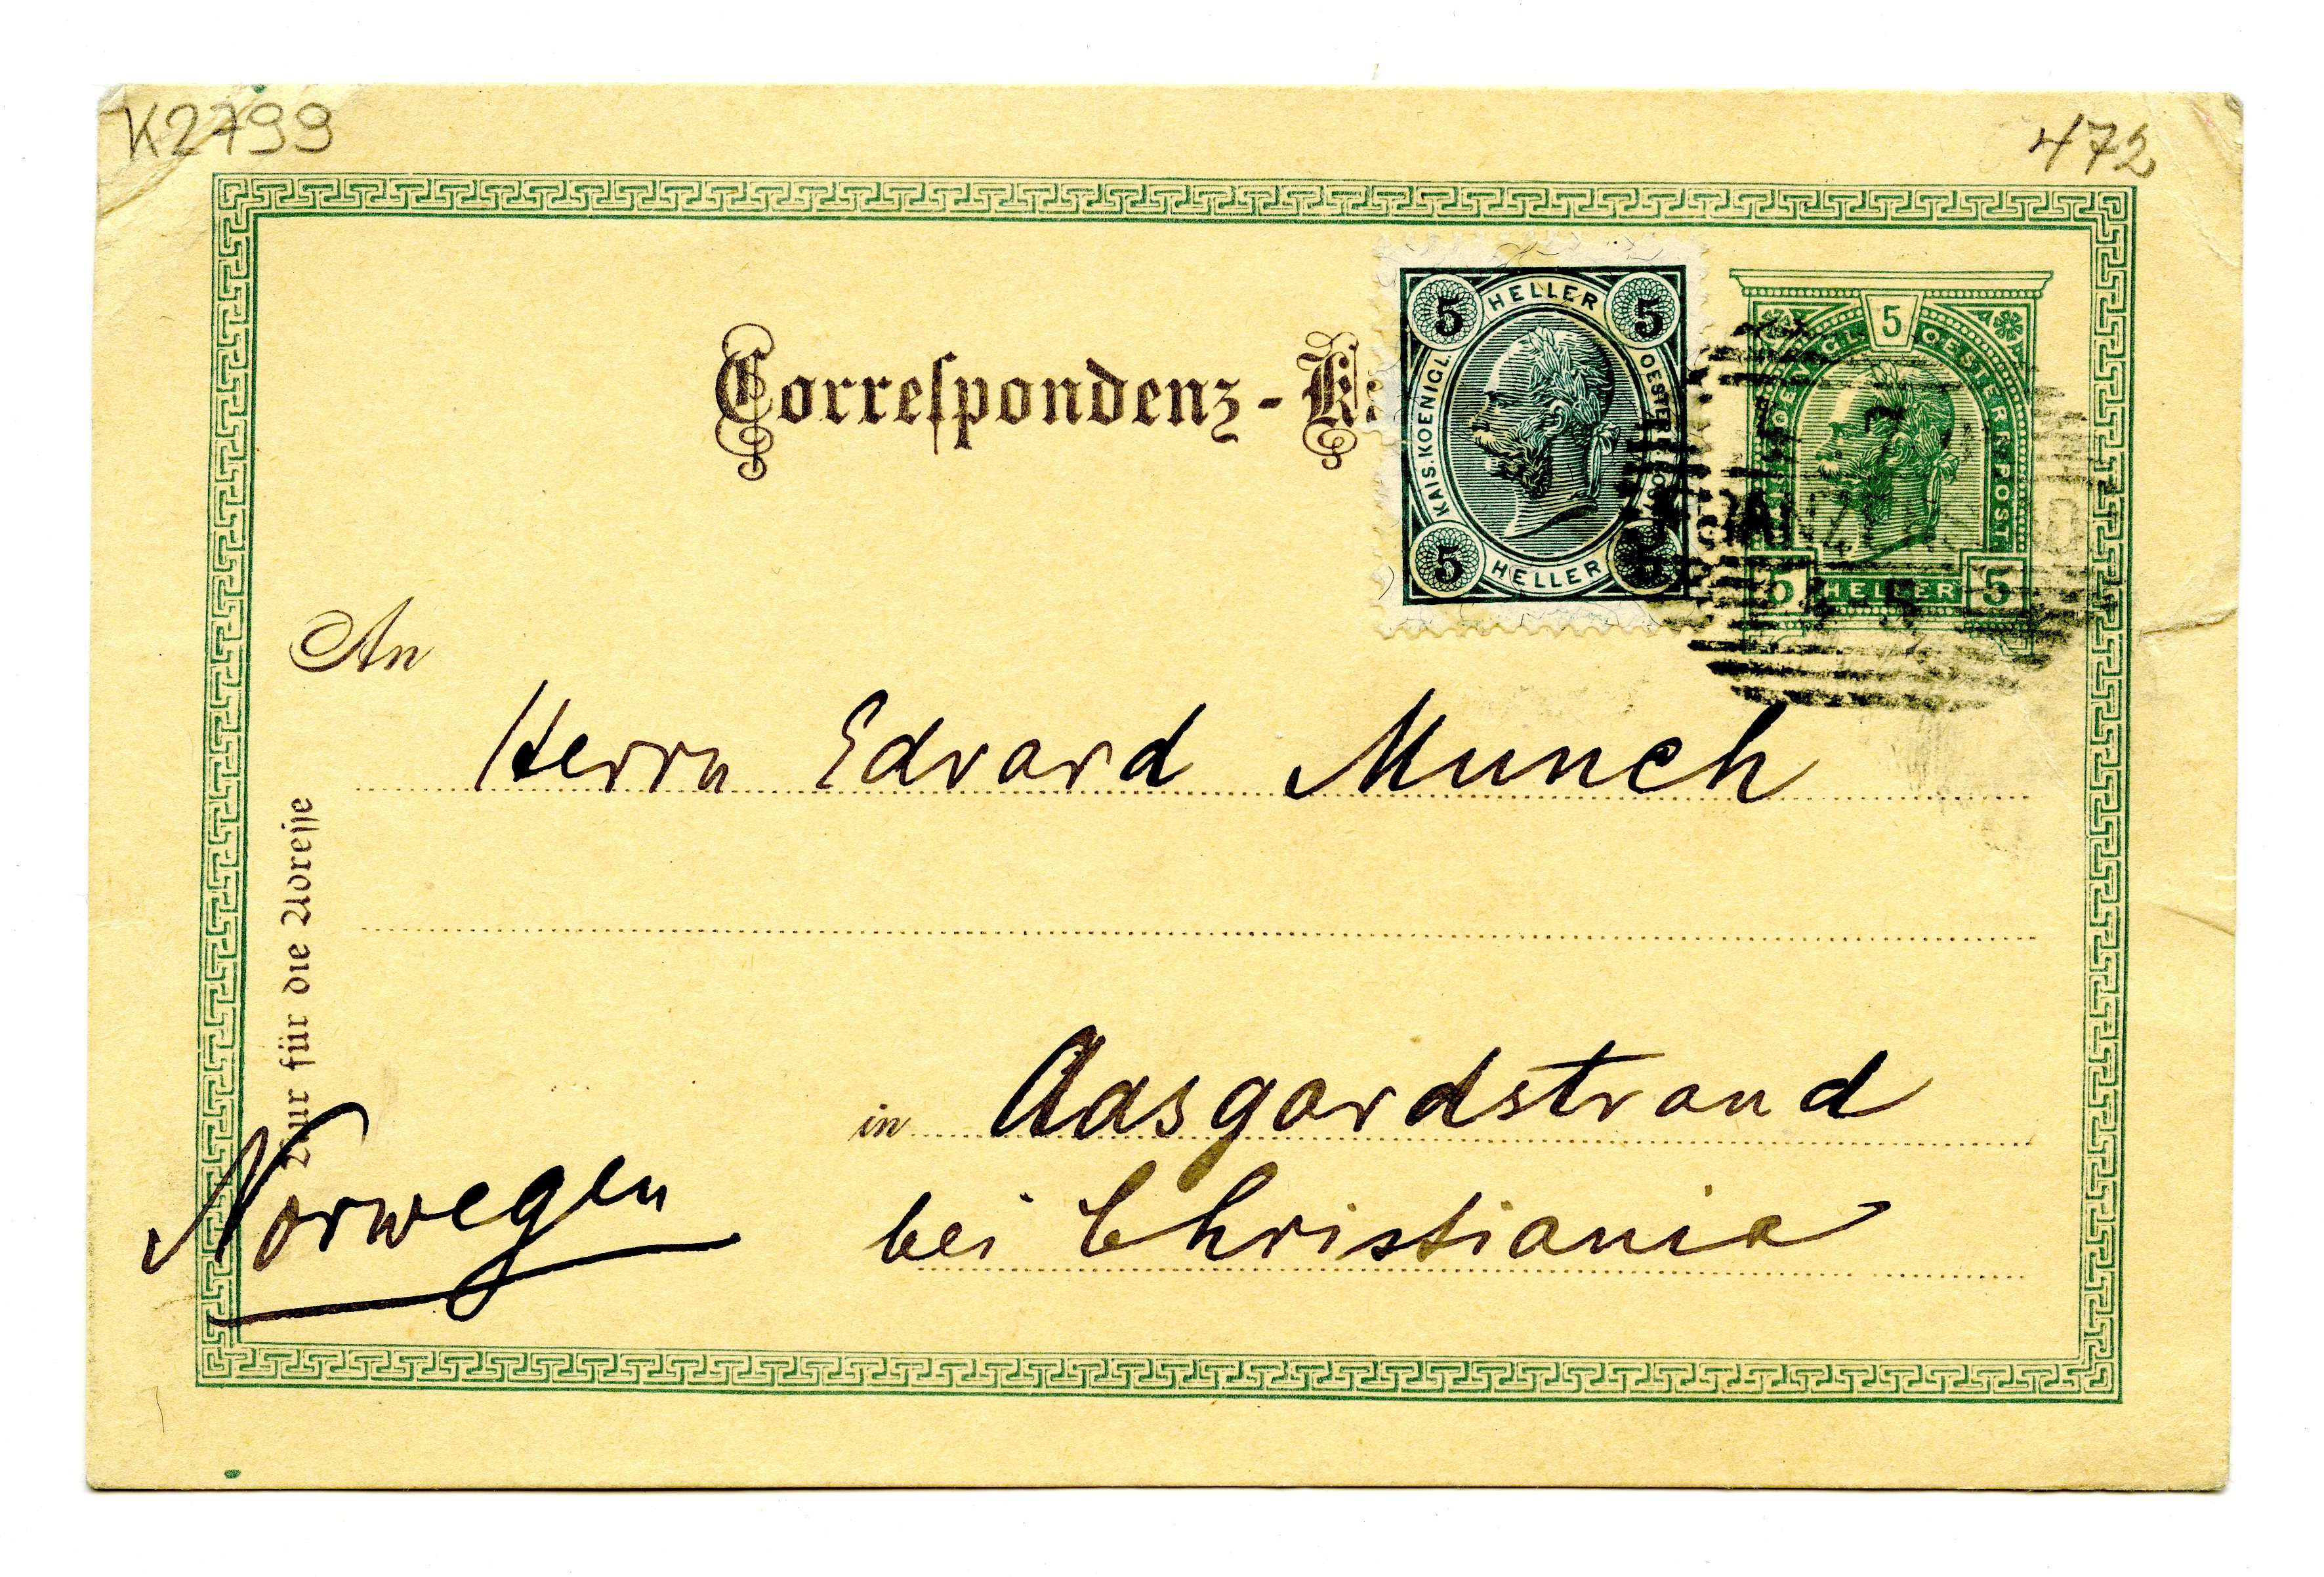 K2799
472
Correspondenz-K
5 HELLER 5
KAIS. KOENIGL.
OESTERR. POST
5 HELLER 5
5
KOENIGL. OESTERR. POST
5 HELLER 5
An
Herrn Edvard Munch
Nur für die Adresse
in Aasgardstrand
bei Christiania
Norwegen